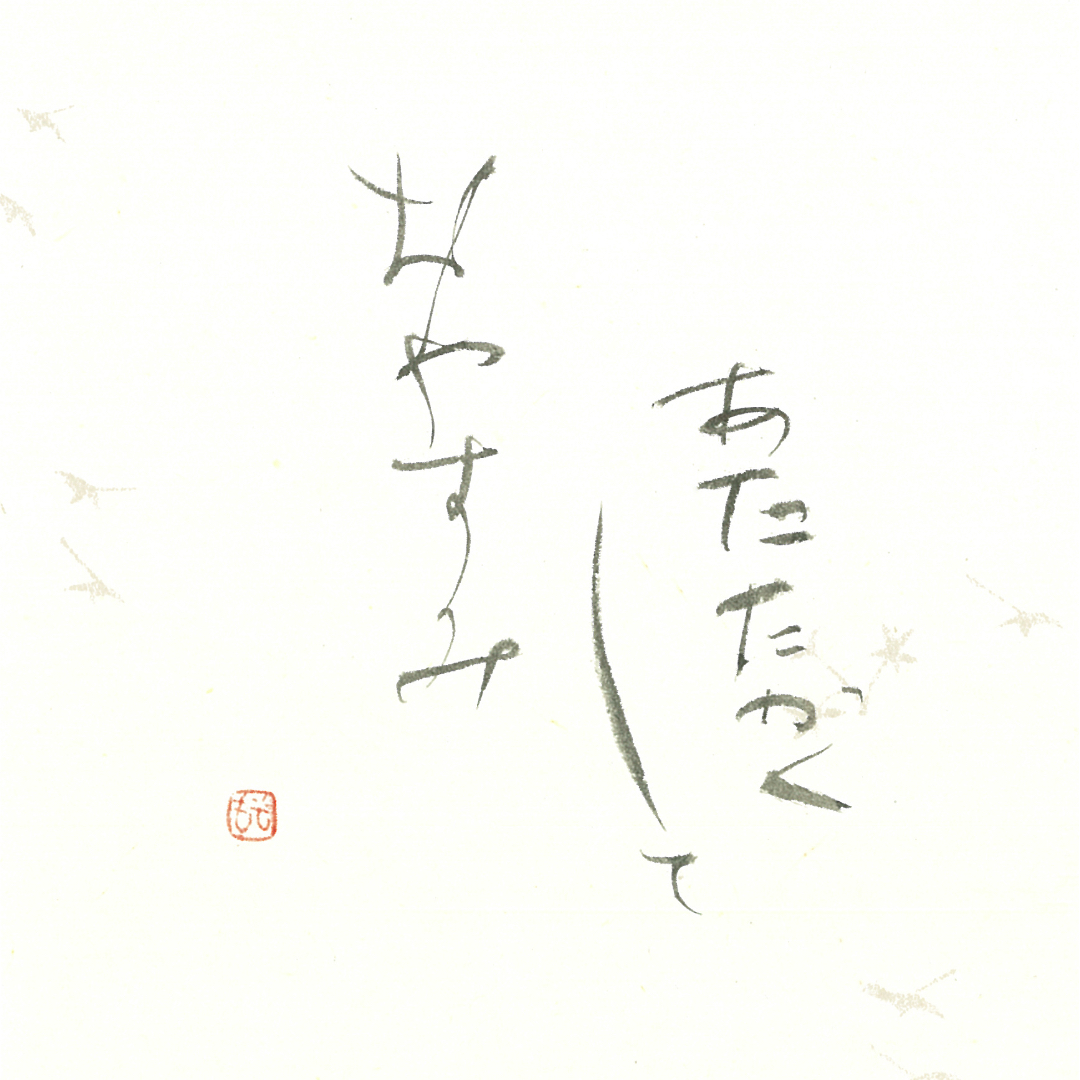 あたたかく
して
おやすみ